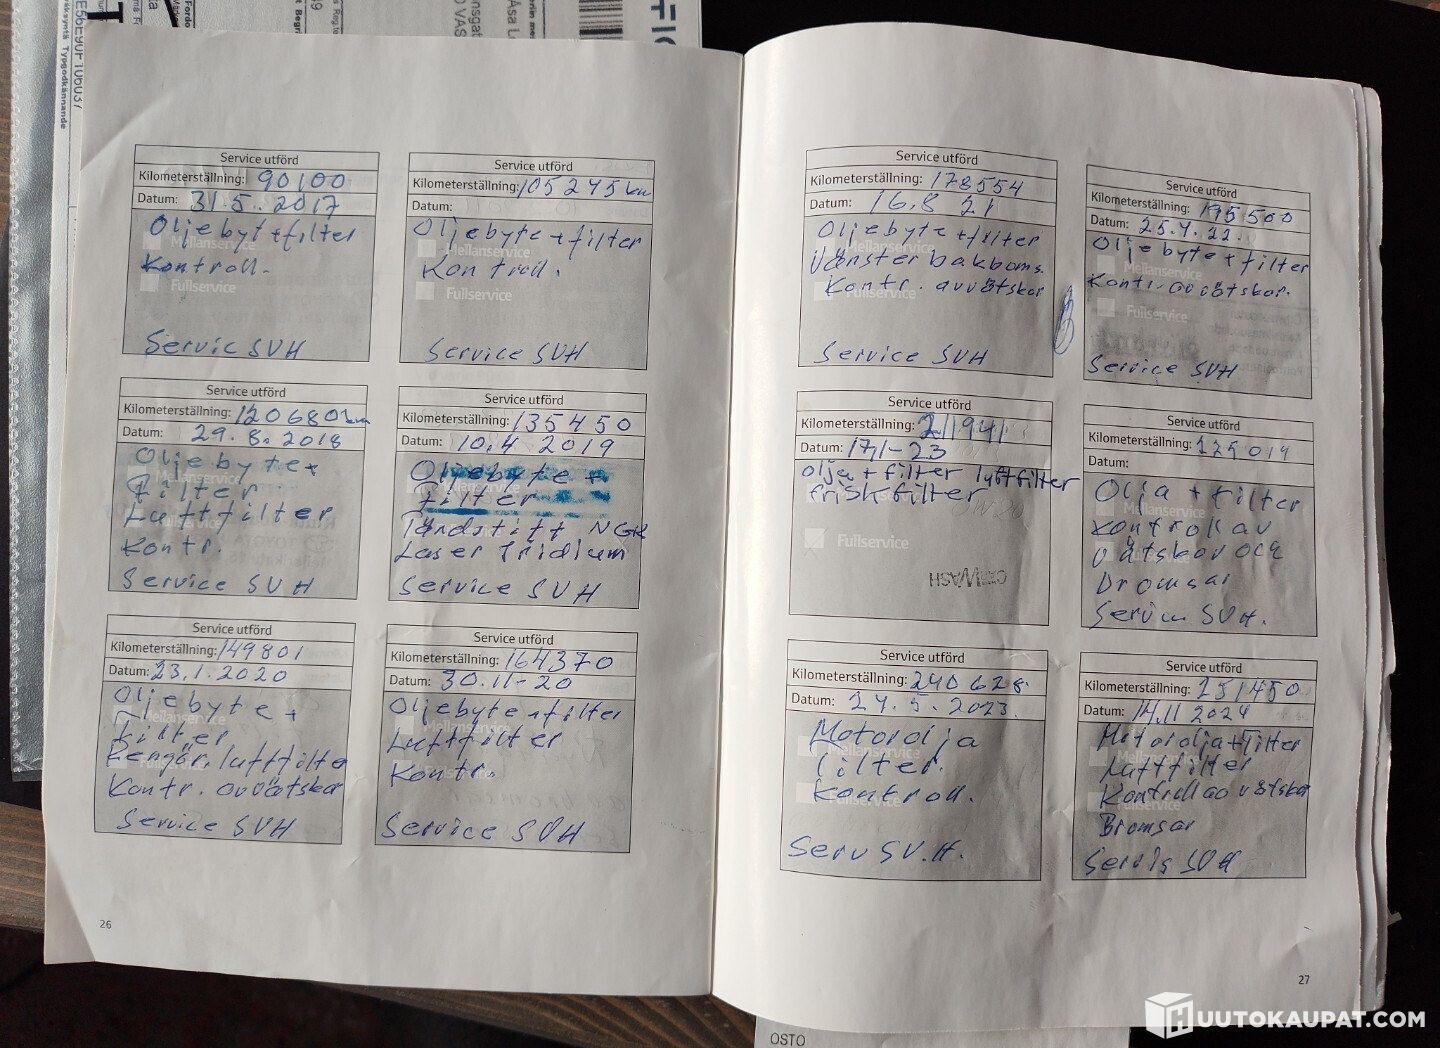 Service utförd
Kilometerställning: 90100
Datum: 31.5.2017
Oljebyt+filter
Mellanservice
Kontroll.
Fullservice
Servic SVH
Service utförd
Kilometerställning: 105245 km
Datum:
Oljebyte+filter
Mellanservice
Kontroll.
Fullservice
Service SVH
Service utförd
Kilometerställning: 120680 km
Datum: 29.8.2018
Oljebyte+
Filter
Luftfilter
Kontr.
Service SVH
Service utförd
Kilometerställning: 135450
Datum: 10.4 2019
Oljebyte+
filter
Tändstift NGK
Laser Iridium
Service SVH
Service utförd
Kilometerställning: 149801
Datum: 23.1.2020
Oljebyte+
Filter
Rengör. luftfilte
Kontr. avvätskor
Service SVH
Service utförd
Kilometerställning: 164370
Datum: 30.11-20
Oljebyte+filter
Luftfilter
Kontr.
Service SVH
26
Service utförd
Kilometerställning: 178554
Datum: 16.8 21
Oljebyte+filter
Mellanservice
Vänster bakboms.
Kontr. avvätskor
Fullservice
Service SVH
Service utförd
Kilometerställning: 195500
Datum: 25.4.22.
Oljebyte+filter
Mellanservice
Kontr. avvätskor.
Fullservice
Service SVH
Service utförd
Kilometerställning: 211941
Datum: 17,1-23
olja+filter luftfilter
friskfilter
Fullservice
CARWASH
Service utförd
Kilometerställning: 225019
Datum:
Olja+filter
Mellanservice
Kontroll av
vätskor och
Bromsar
SVH.
Service utförd
Kilometerställning: 240628
Datum: 24.5.2023
Motorolja
filter.
Kontroll.
Serv SV.H.
Service utförd
Kilometerställning: 251450
Datum: 14.11 2024
Motorolja+filter
Luftfilter
Kontroll av vätskor
Bromsar
Servis SVH
27
OSTO
HUUTOKAUPAT.COM